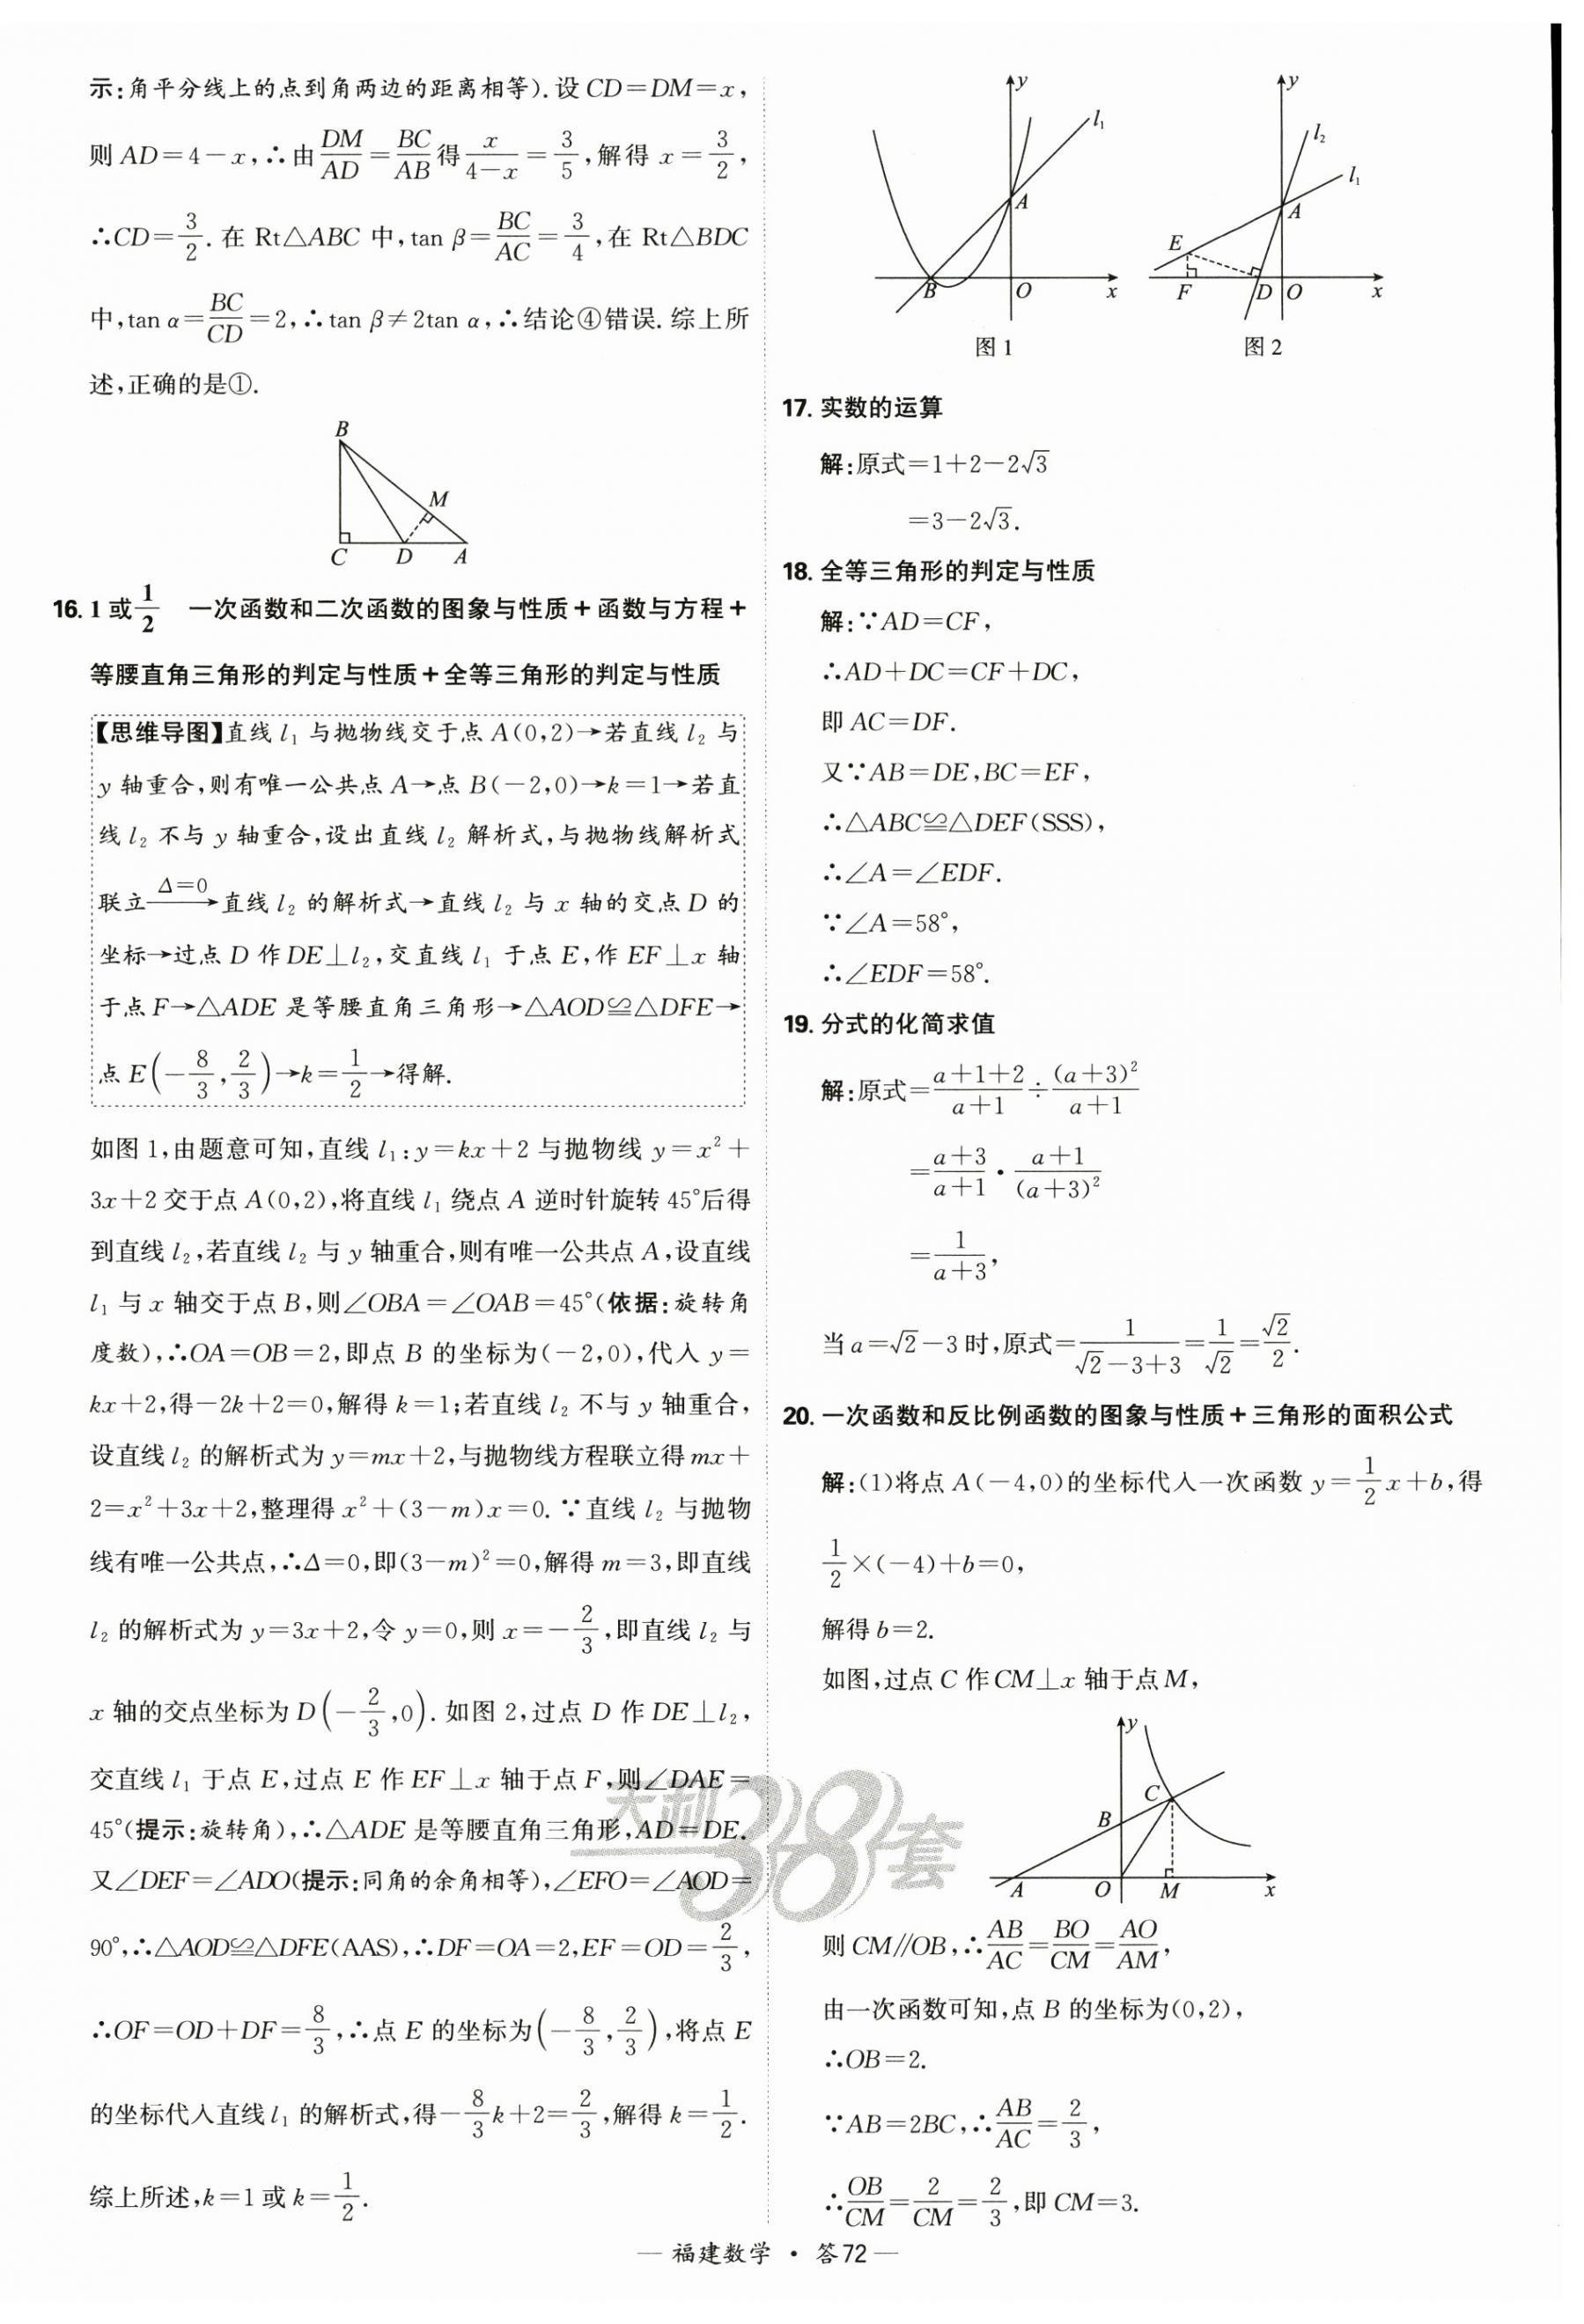 示:角平分线上的点到角两边的距离相等).设CD=DM=x,
则AD=4-x,∴由DM/AD=BC/AB得x/(4-x)=3/5,解得x=3/2,
∴CD=3/2.在Rt△ABC中,tan β=BC/AC=3/4,在Rt△BDC
中,tan α=BC/CD=2,∴tan β≠2tan α,∴结论④错误.综上所
述,正确的是①.
B
M
C D A
16. 1或1/2 一次函数和二次函数的图象与性质+函数与方程+
等腰直角三角形的判定与性质+全等三角形的判定与性质
【思维导图】直线l₁与抛物线交于点A(0,2)→若直线l₂与
y轴重合,则有唯一公共点A→点B(-2,0)→k=1→若直
线l₂不与y轴重合,设出直线l₂解析式,与抛物线解析式
联立 Δ=0→直线l₂的解析式→直线l₂与x轴的交点D的
坐标→过点D作DE⊥l₂,交直线l₁于点E,作EF⊥x轴
于点F→△ADE是等腰直角三角形→△AOD≌△DFE→
点E(-8/3,2/3)→k=1/2→得解.
如图1,由题意可知,直线l₁:y=kx+2与抛物线y=x²+
3x+2交于点A(0,2),将直线l₁绕点A逆时针旋转45°后得
到直线l₂,若直线l₂与y轴重合,则有唯一公共点A,设直线
l₁与x轴交于点B,则∠OBA=∠OAB=45°(依据:旋转角
度数),∴OA=OB=2,即点B的坐标为(-2,0),代入y=
kx+2,得-2k+2=0,解得k=1;若直线l₂不与y轴重合,
设直线l₂的解析式为y=mx+2,与抛物线方程联立得mx+
2=x²+3x+2,整理得x²+(3-m)x=0.∵直线l₂与抛物
线有唯一公共点,∴Δ=0,即(3-m)²=0,解得m=3,即直线
l₂的解析式为y=3x+2,令y=0,则x=-2/3,即直线l₂与
x轴的交点坐标为D(-2/3,0).如图2,过点D作DE⊥l₂,
交直线l₁于点E,过点E作EF⊥x轴于点F,则∠DAE=
45°(提示:旋转角),∴△ADE是等腰直角三角形,AD=DE.
又∠DEF=∠ADO(提示:同角的余角相等),∠EFO=∠AOD=
90°,∴△AOD≌△DFE(AAS),∴DF=OA=2,EF=OD=2/3,
∴OF=OD+DF=8/3,∴点E的坐标为(-8/3,2/3),将点E
的坐标代入直线l₁的解析式,得-8/3k+2=2/3,解得k=1/2.
综上所述,k=1或k=1/2.
y
l₁
A
B O x
图1
y
l₂
l₁
A
E
F D O x
图2
17. 实数的运算
解:原式=1+2-2√3
=3-2√3.
18. 全等三角形的判定与性质
解:∵AD=CF,
∴AD+DC=CF+DC,
即AC=DF.
又∵AB=DE,BC=EF,
∴△ABC≌△DEF(SSS),
∴∠A=∠EDF.
∵∠A=58°,
∴∠EDF=58°.
19. 分式的化简求值
解:原式=(a+1+2)/(a+1)÷(a+3)²/(a+1)
=(a+3)/(a+1)·(a+1)/(a+3)²
=1/(a+3),
当a=√2-3时,原式=1/(√2-3+3)=1/√2=√2/2.
20. 一次函数和反比例函数的图象与性质+三角形的面积公式
解:(1)将点A(-4,0)的坐标代入一次函数y=1/2x+b,得
1/2×(-4)+b=0,
解得b=2.
如图,过点C作CM⊥x轴于点M,
y
C
B
A O M x
则CM//OB,∴AB/AC=BO/CM=AO/AM,
由一次函数可知,点B的坐标为(0,2),
∴OB=2.
∵AB=2BC,∴AB/AC=2/3,
∴OB/CM=2/CM=2/3,即CM=3.
天利38套
— 福建数学 · 答72 —